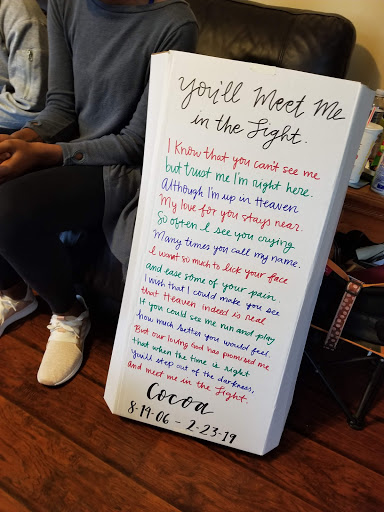 You'll Meet Me
in the Light.
I Know that you can't see me
but trust me I'm right here.
Although I'm up in Heaven
My love for you stays near.
So often I see you crying
Many times you call my name.
I want so much to lick your face
and ease some of your pain.
I wish that I could make you see
that Heaven indeed is real
If you could see me run and play
how much better you would feel.
But our loving God has promised me
that when the time is right
You'll step out of the darkness,
and meet me in the Light.
Cocoa
8-19-06 - 2-23-19